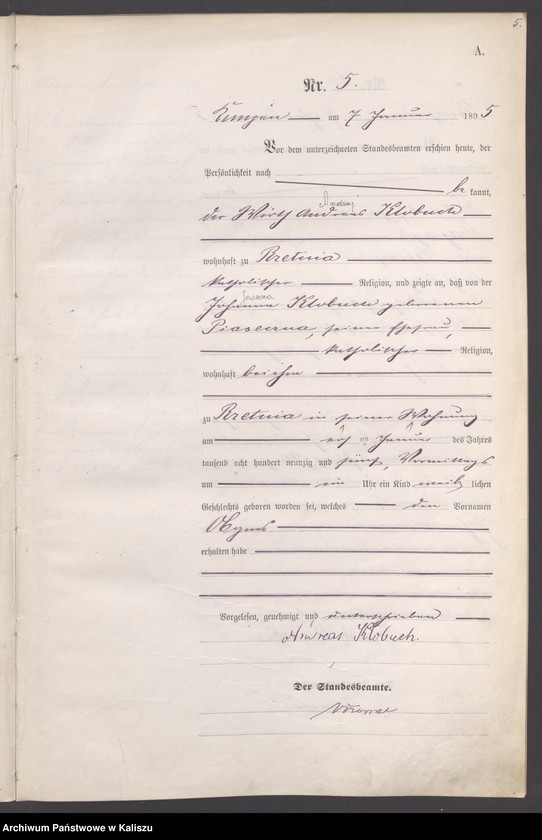 5.
A.
Nr. 5.
am 7 Januar 1895
Vor dem unterzeichneten Standesbeamten erschien heute, der
Persönlichkeit nach
be kannt,
Andrzej
der Wirth Andreas Klobuch
wohnhaft zu Rzetnia
katholischer Religion, und zeigte an, daß von der
Joanna
Johanna Klobuch geborenen
seiner Ehefrau,
katholischer Religion,
wohnhaft bei ihm
zu Rzetnia in seiner Wohnung
am Januar des Jahres
tausend acht hundert neunzig und fünf, Vormittags
um ein Uhr ein Kind weib lichen
Geschlechts geboren worden sei, welches den Vornamen
erhalten habe
Vorgelesen, genehmigt und unterschrieben
Andreas Klobuch.
Der Standesbeamte.
Archiwum Państwowe w Kaliszu